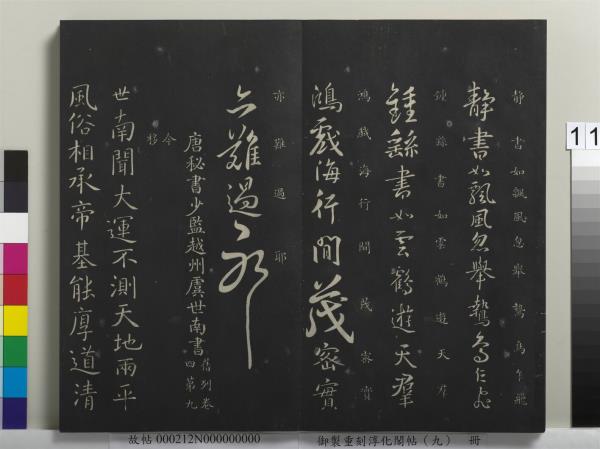 静書如飄風忽舉鷙鳥乍飛
静書如飄風忽舉鷙鳥乍飛
鍾繇書如雲鶴遊天群
鍾繇書如雲鶴遊天群
鴻戲海行間茂密實
鴻戲海行間茂密實
亦難過耶
亦難過耶
唐秘書少監越州虞世南書
舊列卷
四第九
今
移
世南聞大運不測天地兩平
風俗相承帝基能厚道清
11
故帖 000212N000000000
御製重刻淳化閣帖(九) 冊